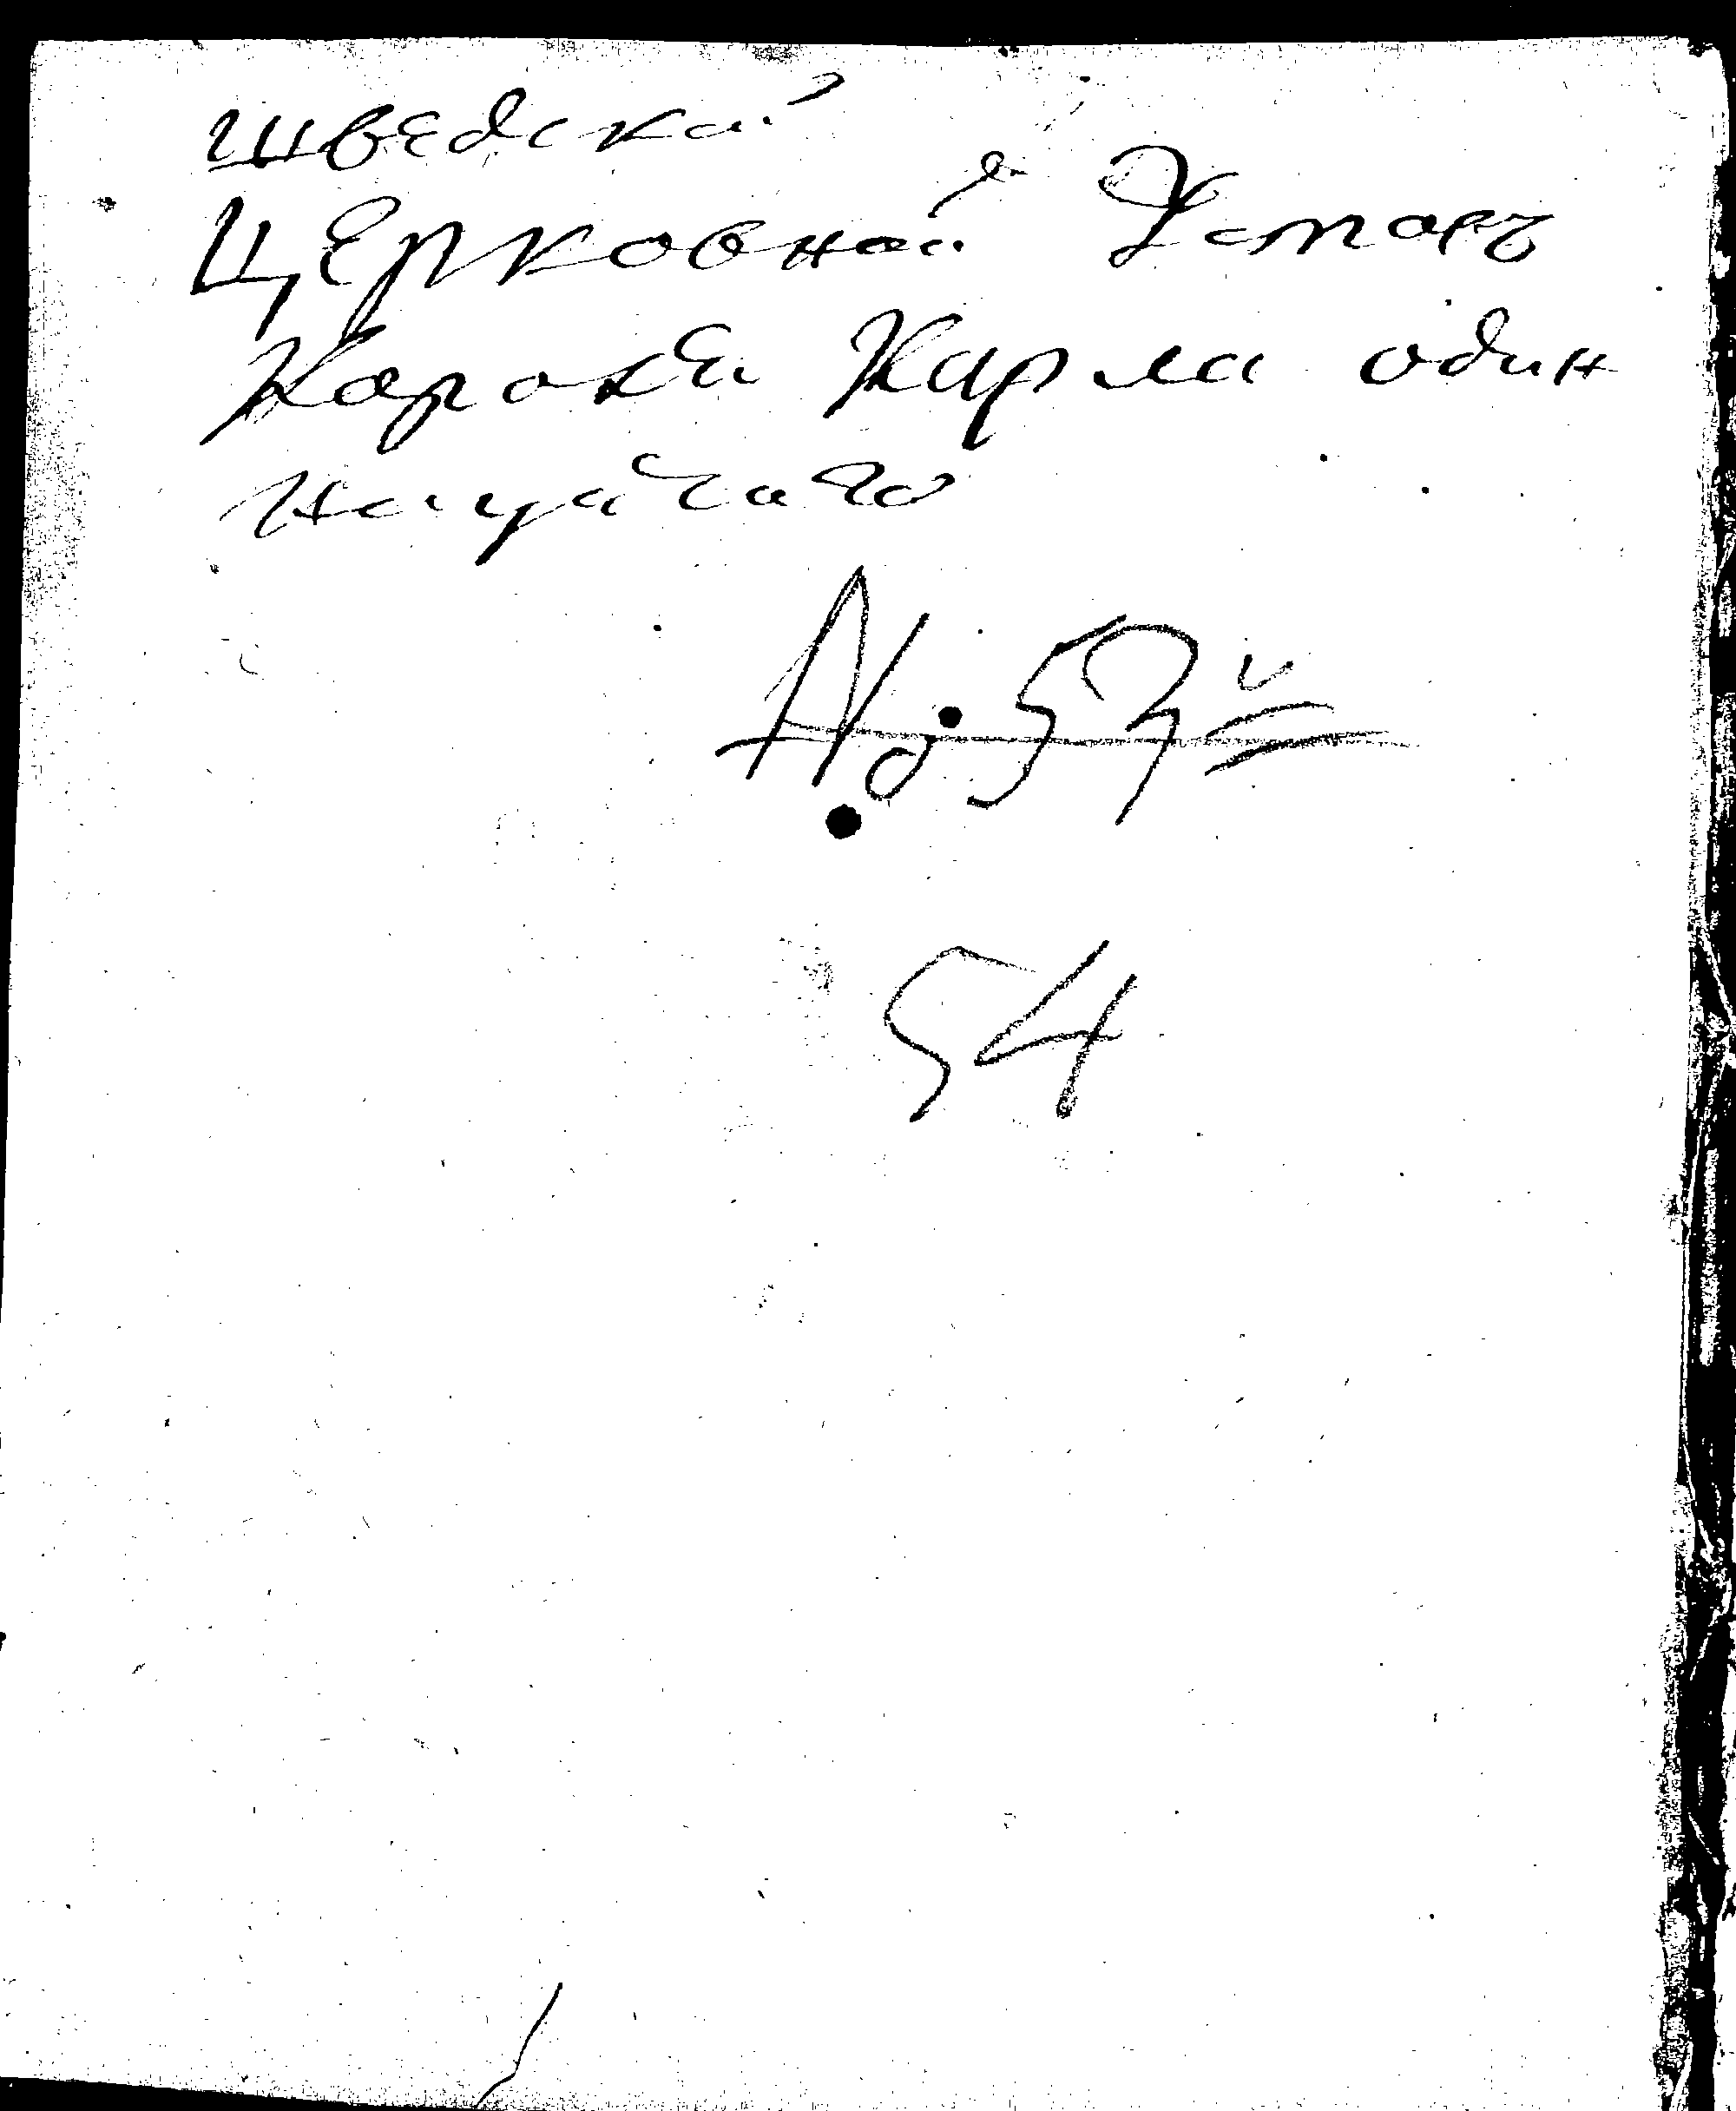 шведской
церковной Устав
Короля Карла один
натцатого
№ 52
54